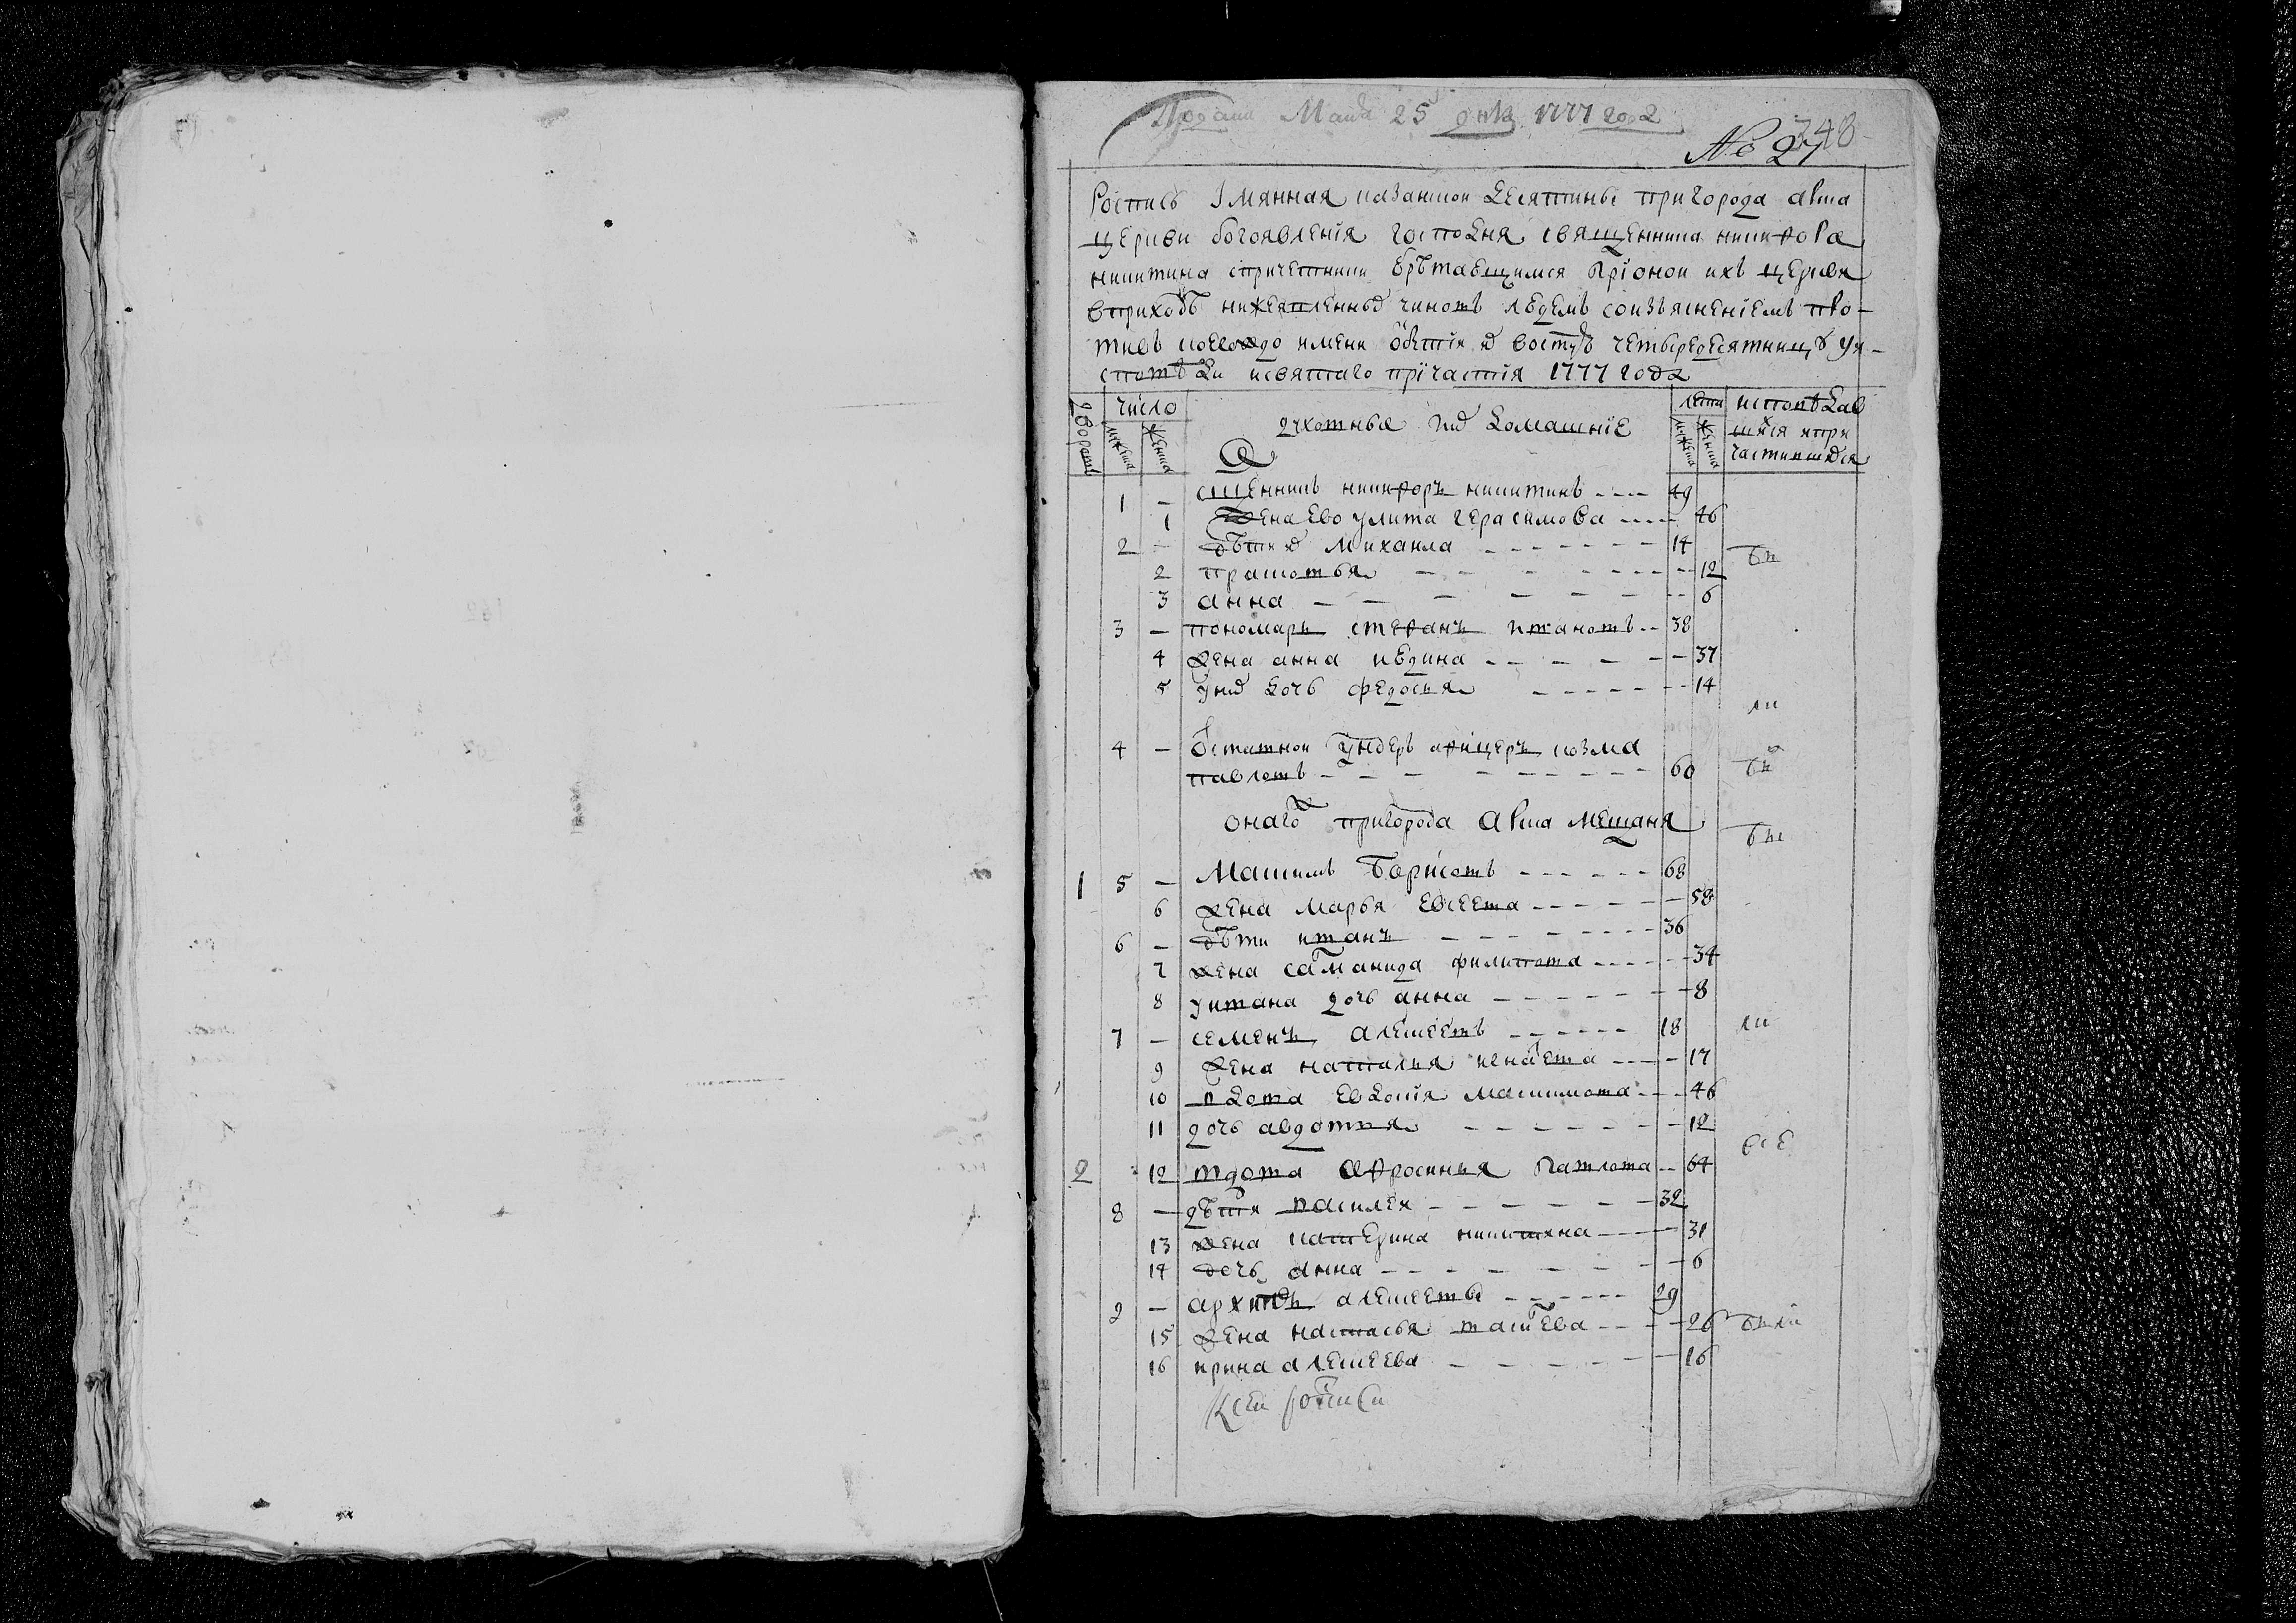 Подана Маиа 25 дня 1777 года
348
№ 27
Роспись Имянная казанскои десятины пригорода арска
церкви богоявления господня священника никифора
никитина спричетники обрѣтающимся прионой ихъ церкви
вприходѣ нижеявленныхъ чиновъ людемъ соизъяснениемъ про-
тивъ коегождо имени о бытии ихъ во стую четыредесятницу у и-
споведи исвятаго причастия 1777 года
дворовъ
число
мужеска
женска
духовные и ихъ домашние
лета
мужеска
женска
исповѣдав
шихся ипри
частившихся
1 — сщенникъ никифоръ никитинъ 49
1 жена ево улита герасимова 46
2 — дѣти ихъ михаила 14
2 прасковья 12
3 анна 6
3 — пономарь стефанъ ивановъ 38
4 жена анна 37
5 у нихъ дочь федосья 14
4 — отставнои ундеръ афицеръ козма
павловъ 60
онаго пригорода арска мещаня
1 5 — Максимъ Борисовъ 68
6 жена марья евсеева 58
6 — дѣти иванъ 36
7 жена саломанида филипова 34
8 у ивана дочь анна 8
7 — семенъ алексеевъ 18
9 жена наталья игнатева 17
10 вдова евдокия максимова 46
11 дочь авдотия 12
2 12 вдова афросинья павлова 64
8 — дѣти василеи 32
13 жена катерина никитина 31
14 дочь анна 6
9 — архипъ алексеевъ 29
15 жена настасья 26
16 ирина алексеева 16
К сеи росписи